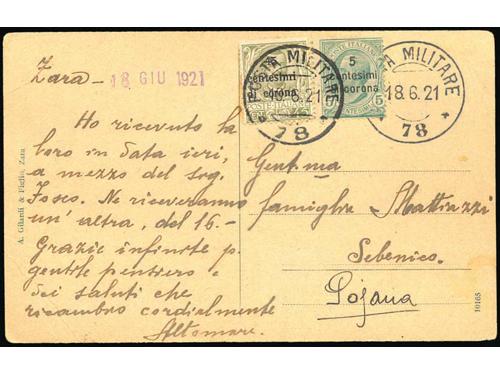 Zara - 18 GIU 1921
Ho ricevuto la
loro in data ieri,
a mezzo del sog.
Fosco. Ne riceveranno
un' altra, del 16-
Grazie infinite p.
gentile pensiero e
dei saluti che
ricambro cordialmente
Altomare
A. Gilardi & Figlio, Zara
POSTA MILITARE
6.21
78
centesimi
di corona
POSTE ITALIANE
5
centesimi
di corona
POSTE ITALIANE
5
POSTA MILITARE
18.6.21
78
Gent.ma
famiglia Mattiazzi
Sebenico
Lojana
10165